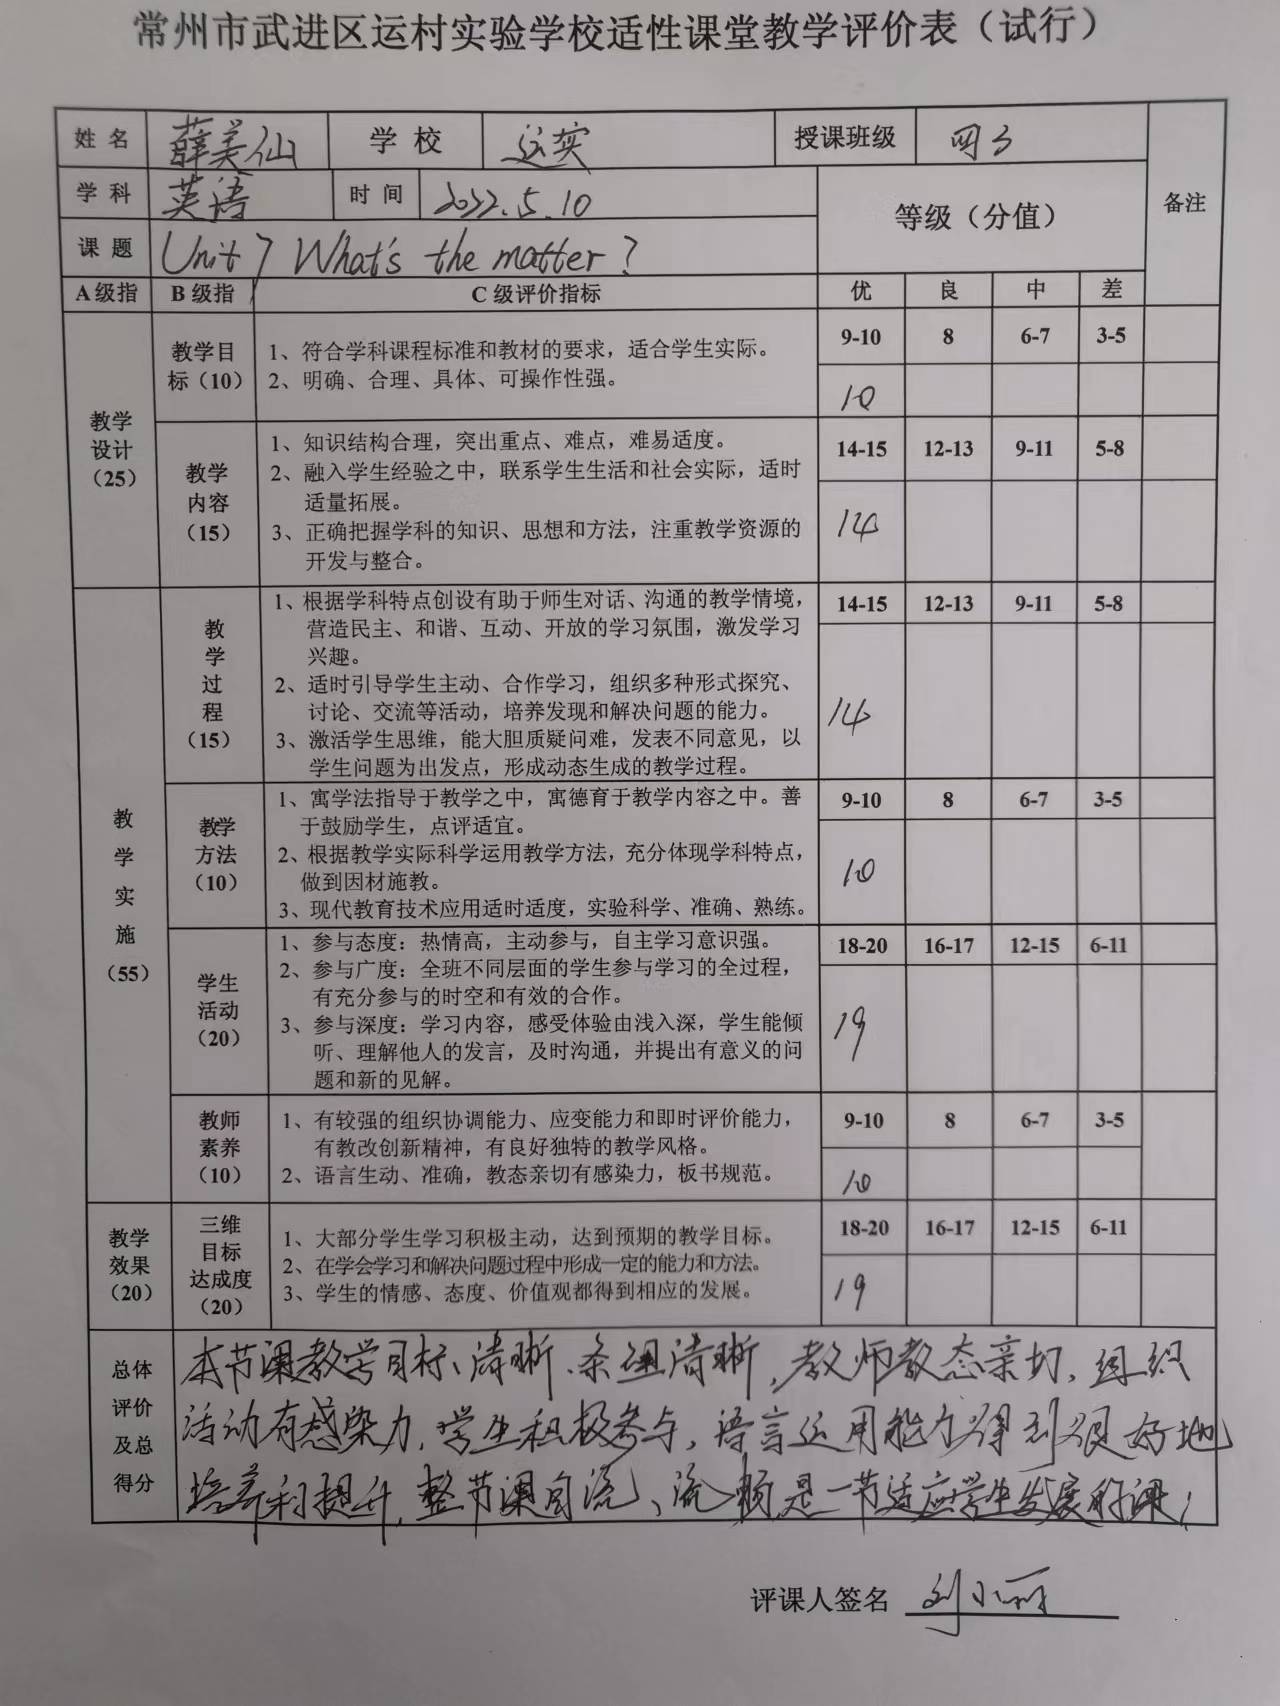 常州市武进区运村实验学校适性课堂教学评价表（试行）
姓 名 薛美仙 学 校 运实 授课班级 四3 备注
学 科 英语 时 间 2022.5.10 等级（分值）
课 题 Unit 7 What's the matter?
A级指 B级指 C 级评价指标 优 良 中 差
教学设计（25）
教学目标（10）
1、符合学科课程标准和教材的要求，适合学生实际。
2、明确、合理、具体、可操作性强。
9-10 8 6-7 3-5
10
教学内容（15）
1、知识结构合理，突出重点、难点，难易适度。
2、融入学生经验之中，联系学生生活和社会实际，适时
适量拓展。
3、正确把握学科的知识、思想和方法，注重教学资源的
开发与整合。
14-15 12-13 9-11 5-8
14
教学实施（55）
教学过程（15）
1、根据学科特点创设有助于师生对话、沟通的教学情境，
营造民主、和谐、互动、开放的学习氛围，激发学习
兴趣。
2、适时引导学生主动、合作学习，组织多种形式探究、
讨论、交流等活动，培养发现和解决问题的能力。
3、激活学生思维，能大胆质疑问难，发表不同意见，以
学生问题为出发点，形成动态生成的教学过程。
14-15 12-13 9-11 5-8
14
教学方法（10）
1、寓学法指导于教学之中，寓德育于教学内容之中。善
于鼓励学生，点评适宜。
2、根据教学实际科学运用教学方法，充分体现学科特点，
做到因材施教。
3、现代教育技术应用适时适度，实验科学、准确、熟练。
9-10 8 6-7 3-5
10
学生活动（20）
1、参与态度：热情高，主动参与，自主学习意识强。
2、参与广度：全班不同层面的学生参与学习的全过程，
有充分参与的时空和有效的合作。
3、参与深度：学习内容，感受体验由浅入深，学生能倾
听、理解他人的发言，及时沟通，并提出有意义的问
题和新的见解。
18-20 16-17 12-15 6-11
19
教师素养（10）
1、有较强的组织协调能力、应变能力和即时评价能力，
有教改创新精神，有良好独特的教学风格。
2、语言生动、准确，教态亲切有感染力，板书规范。
9-10 8 6-7 3-5
10
教学效果（20）
三维目标达成度（20）
1、大部分学生学习积极主动，达到预期的教学目标。
2、在学会学习和解决问题过程中形成一定的能力和方法。
3、学生的情感、态度、价值观都得到相应的发展。
18-20 16-17 12-15 6-11
19
总体评价及总得分
本节课教学目标清晰、条理清晰，教师教态亲切，组织
活动有感染力，学生积极参与，语言运用能力得到很好地
培养和提升，整节课自流、流畅，是一节适应学生发展的课！
评课人签名 刘小丽